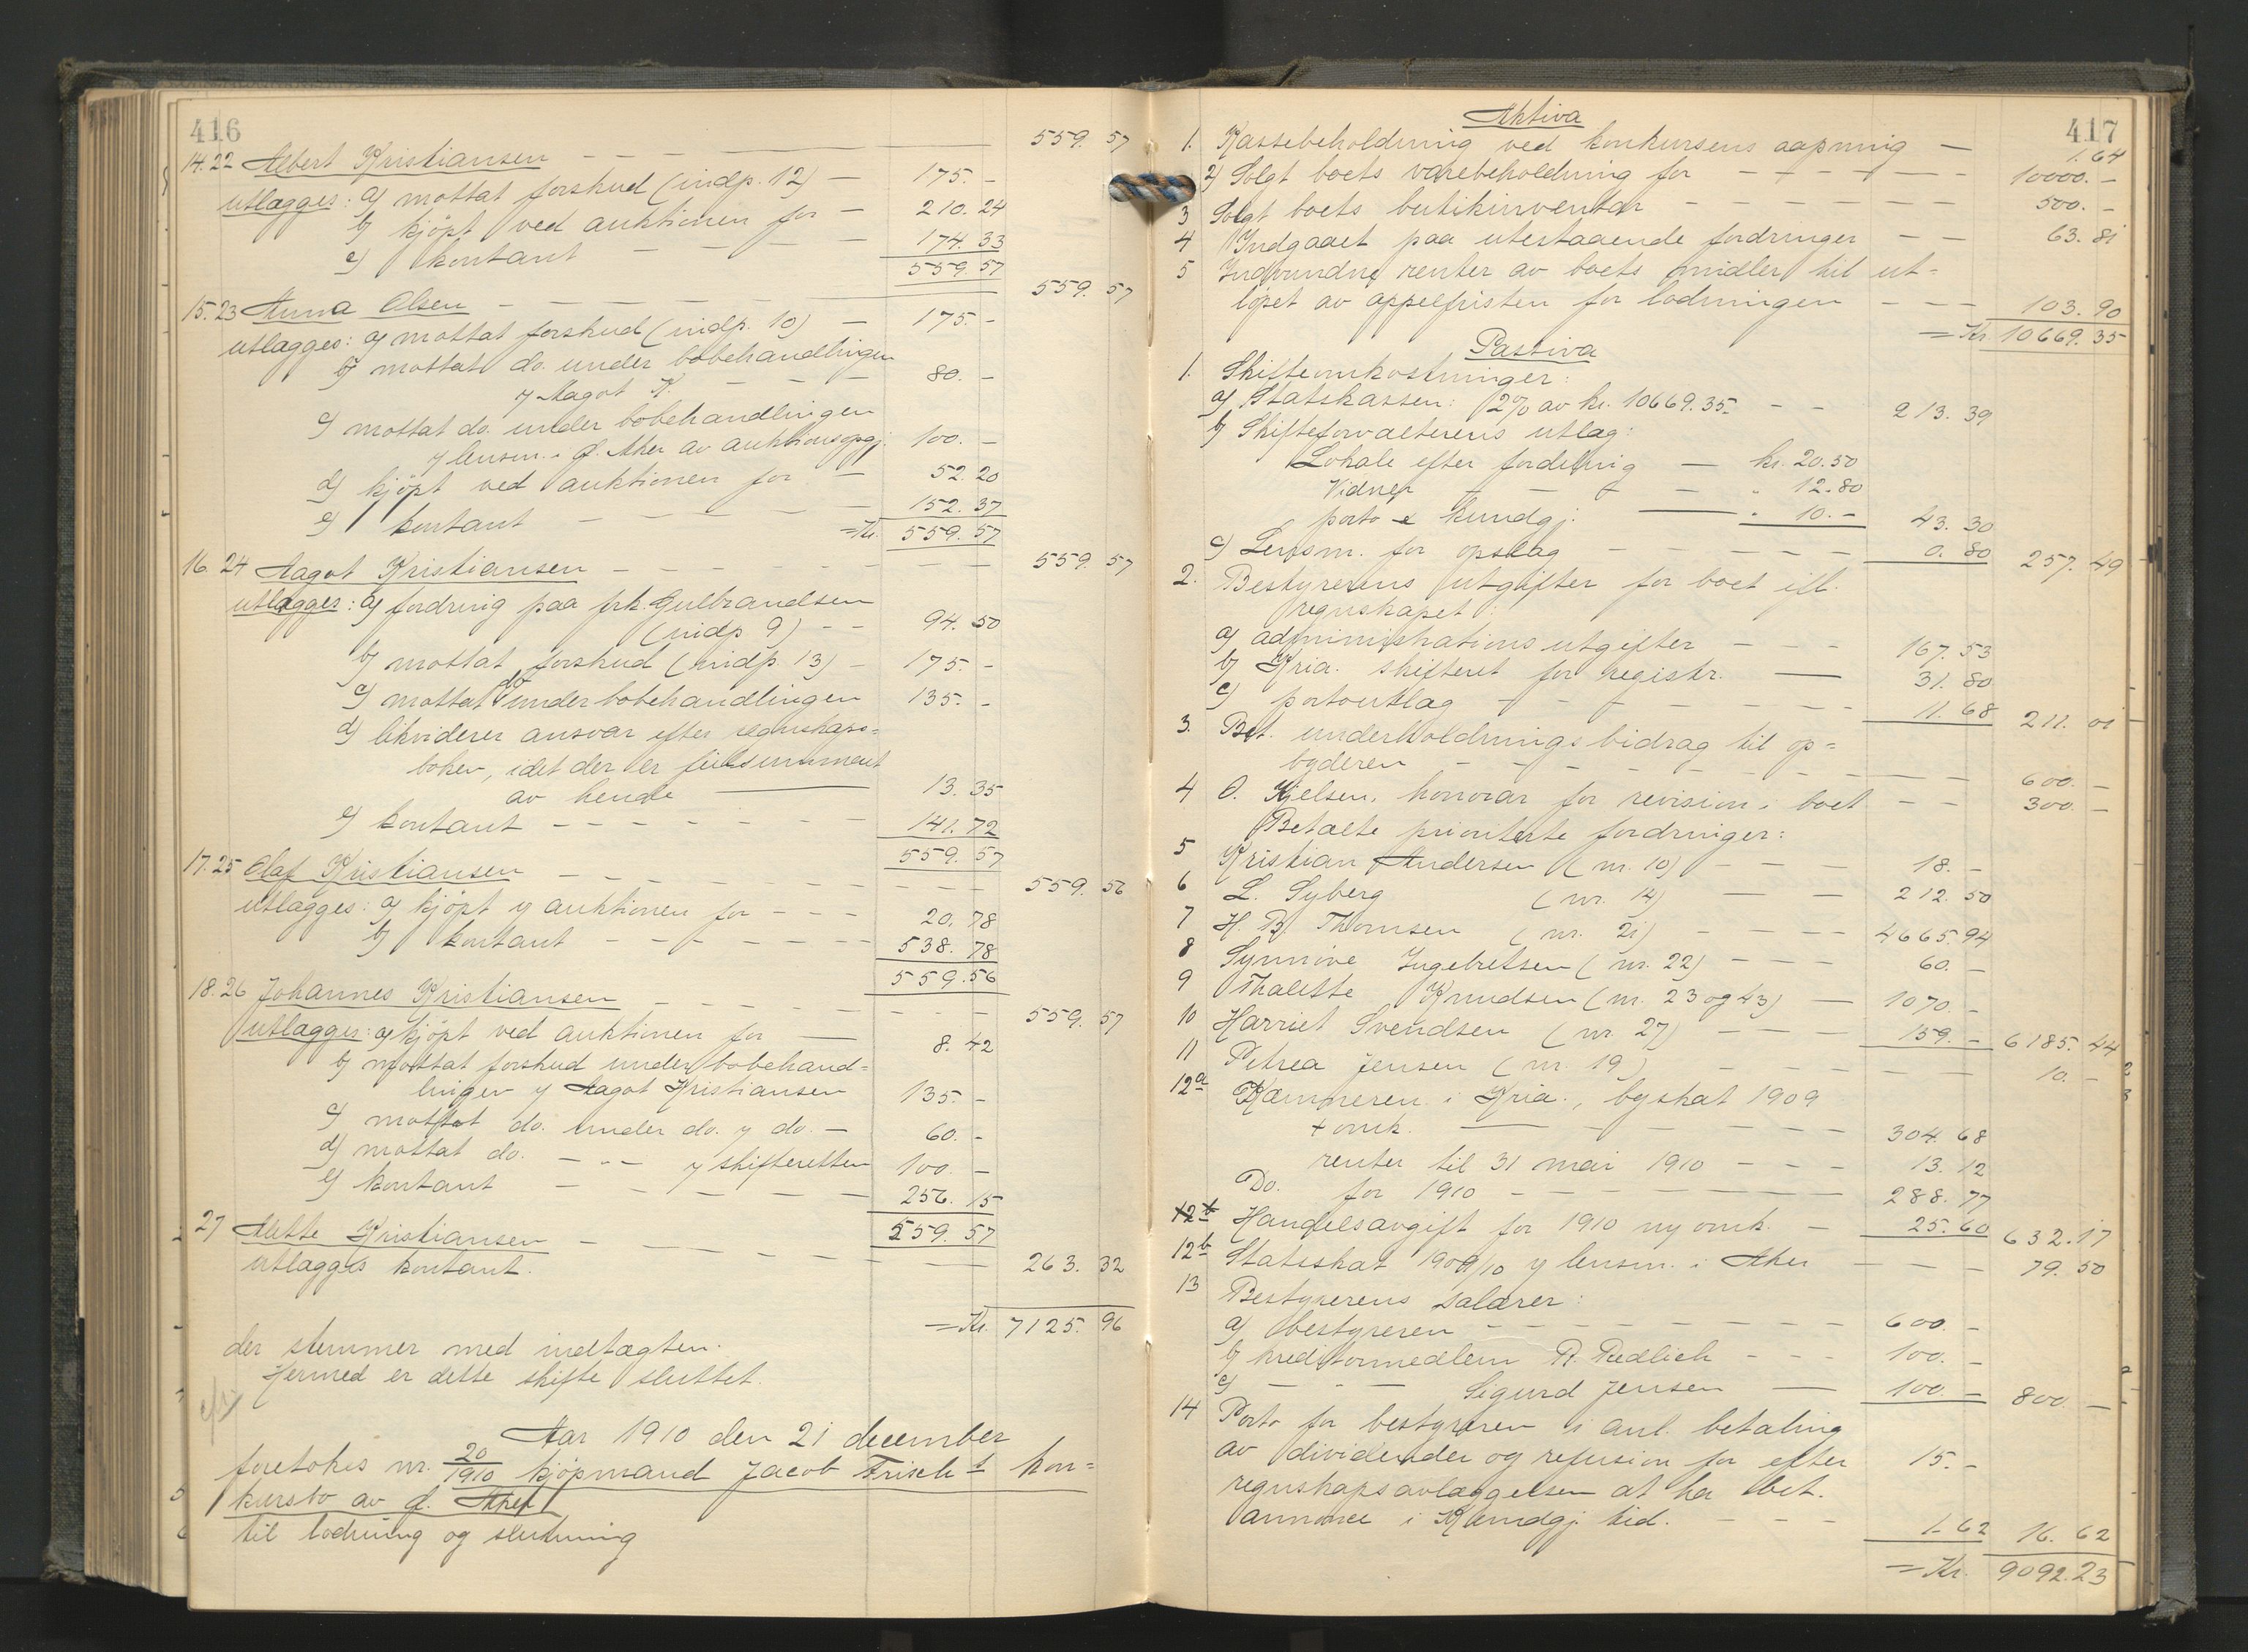 416
14. 22 Albert Kristiansen — — — 559. 57
utlægges: a) mottat forskud (indp. 12) — 175. -
b) kjøpt ved auktionen for — 210. 24
c) kontant — — — 174. 33
559. 57
15. 23 Anna Olsen — — — 559. 57
utlægges: a) mottat forskud (indp. 10) — 175. -
b) mottat do. under bobehandlingen
v/ Aagot K. — — — 80. -
c) mottat do. under bobehandlingen
v/ lensm. i Ø. Aker av auktionsopgj. 100. -
d) kjøpt ved auktionen for — 52. 20
e) kontant — — — 152. 37
= Kr. 559. 57
16. 24 Aagot Kristiansen — — — 559. 57
utlægges: a) fordring paa frk. Gulbrandsen
(indp. 9) — — 94. 50
b) mottat forskud (indp. 13) — 175. -
c) mottat do under bobehandlingen 135. -
d) likviderer ansvar efter regnskaps=
boken, idet der er feilsummert
av hende — 13. 35
e) kontant — — — 141. 72
559. 57
17. 25 Olaf Kristiansen — — — 559. 56
utlægges: a) kjøpt v/ auktionen for — — — 20. 78
b) kontant — — — 538. 78
559. 56
18. 26 Johannes Kristiansen — — — 559. 57
utlægges: a) kjøpt ved auktionen for — 8. 42
b) mottat forskud under bobehand=
lingen v/ Aagot Kristiansen 135. -
c) mottat do. under do. v/ do. — 60. -
d) mottat do. — „ — v/ skifteretten 100. -
e) kontant — — — 256. 15
559. 57
27 Mette Kristiansen — — —
utlægges kontant. 263. 32
= Kr. 7125. 96
der stemmer med indtægten.
Hermed er dette skifte sluttet.
Aar 1910 den 21 december
foretokes nr. 20/1910 kjøpmand Jacob Frisch's kon=
kursbo av Ø. Aker
til lodning og slutning
417
Aktiva
1. Kassebeholdning ved konkursens aapning — 1. 64
2) Solgt boets varebeholdning for — — — 10000. -
3 Solgt boets butikinventar — — — 500. -
4 Indgaaet paa utestaaende fordringer — — 63. 81
5 Indvundne renter av boets midler til ut=
løpet av appelfristen for lodningen — — — 103. 90
= Kr. 10669. 35
Passiva
1. Skifteomkostninger:
a) Statskassen: 2% av kr. 10669.35 — — 213. 39
b) Skifteforvalterens utlæg:
Lokale efter fordeling — kr. 20.50
Vidner — — — „ 12.80
porto & kundgj. — „ 10. - 43. 30
c) Lensm. for opslag — — — 0. 80 257. 49
2. Bestyrerens utgifter for boet ifl.
regnskapet:
a) administrationsutgifter — — — 167. 53
b) Kria. skifteret for registr. — 31. 80
c) portoutlæg — — — 11. 68 211. 01
3. Bet. underholdningsbidrag til op=
byderen — — — 600. -
4 O. Kjelsen, honorar for revision i boet — — 300. -
Betalte prioriterte fordringer:
5 Kristian Andersen (nr. 10) — — — 18. -
6 L. Syberg (nr. 14) — — 212. 50
7 H. B. Thomsen (nr. 21) — — — 4665. 94
8 Synnøve Ingebretsen (nr. 22) — — — 60. -
9 Thalette Knudsen (nr. 23 og 43) — 1070. -
10 Harriet Svendsen (nr. 27) — — — 159. - 6185. 44
11 Petrea Jensen (nr. 19) — — — 10. -
12a Kæmneren i Kria., byskat 1909
+ omk. — — — 304. 68
renter til 31 mai 1910 — — — 13. 12
Do. for 1910 — — — 288. 77
12b Handelsavgift for 1910 m/ omk. — 25. 60 632. 17
12b Statsskat 1909/10 v/ lensm. i Aker — — — 79. 50
13 Bestyrerens salærer:
a) bestyreren — — — 600. -
b) kreditormedlem R. Redlich — — — 100. -
c) — „ — Sigurd Jensen — 100. - 800. -
14 Porto for bestyreren i anl. betaling
av dividender og refusion for efter 15. -
regnskapsavlæggelsen at ha bet.
annonce i Kundgj. tid. — — — 1. 62 16. 62
= Kr. 9092. 23